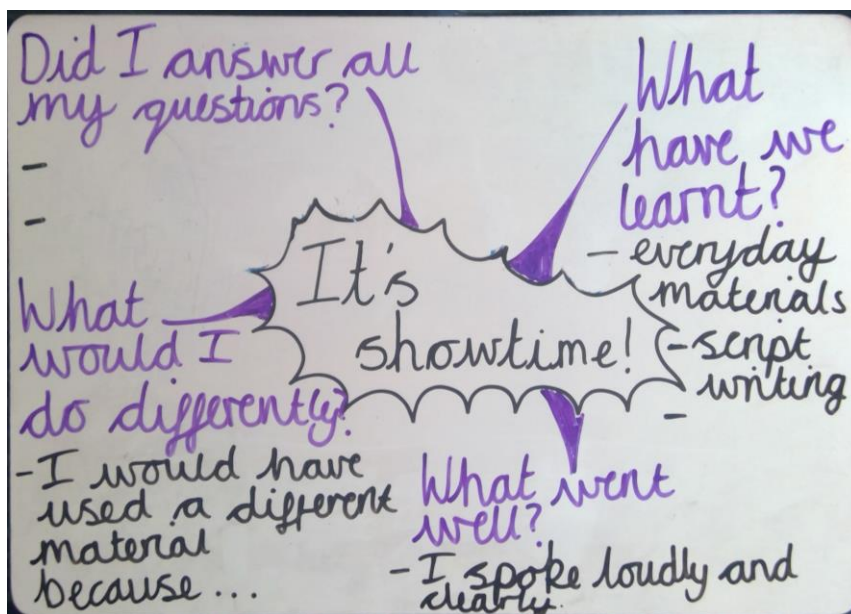 Did I answer all
my questions?
-
-
What
have we
learnt?
- everyday
materials
- script
writing
-
It's
showtime!
What
would I
do differently?
- I would have
used a different
material
because ...
What went
well?
- I spoke loudly and
clearly.